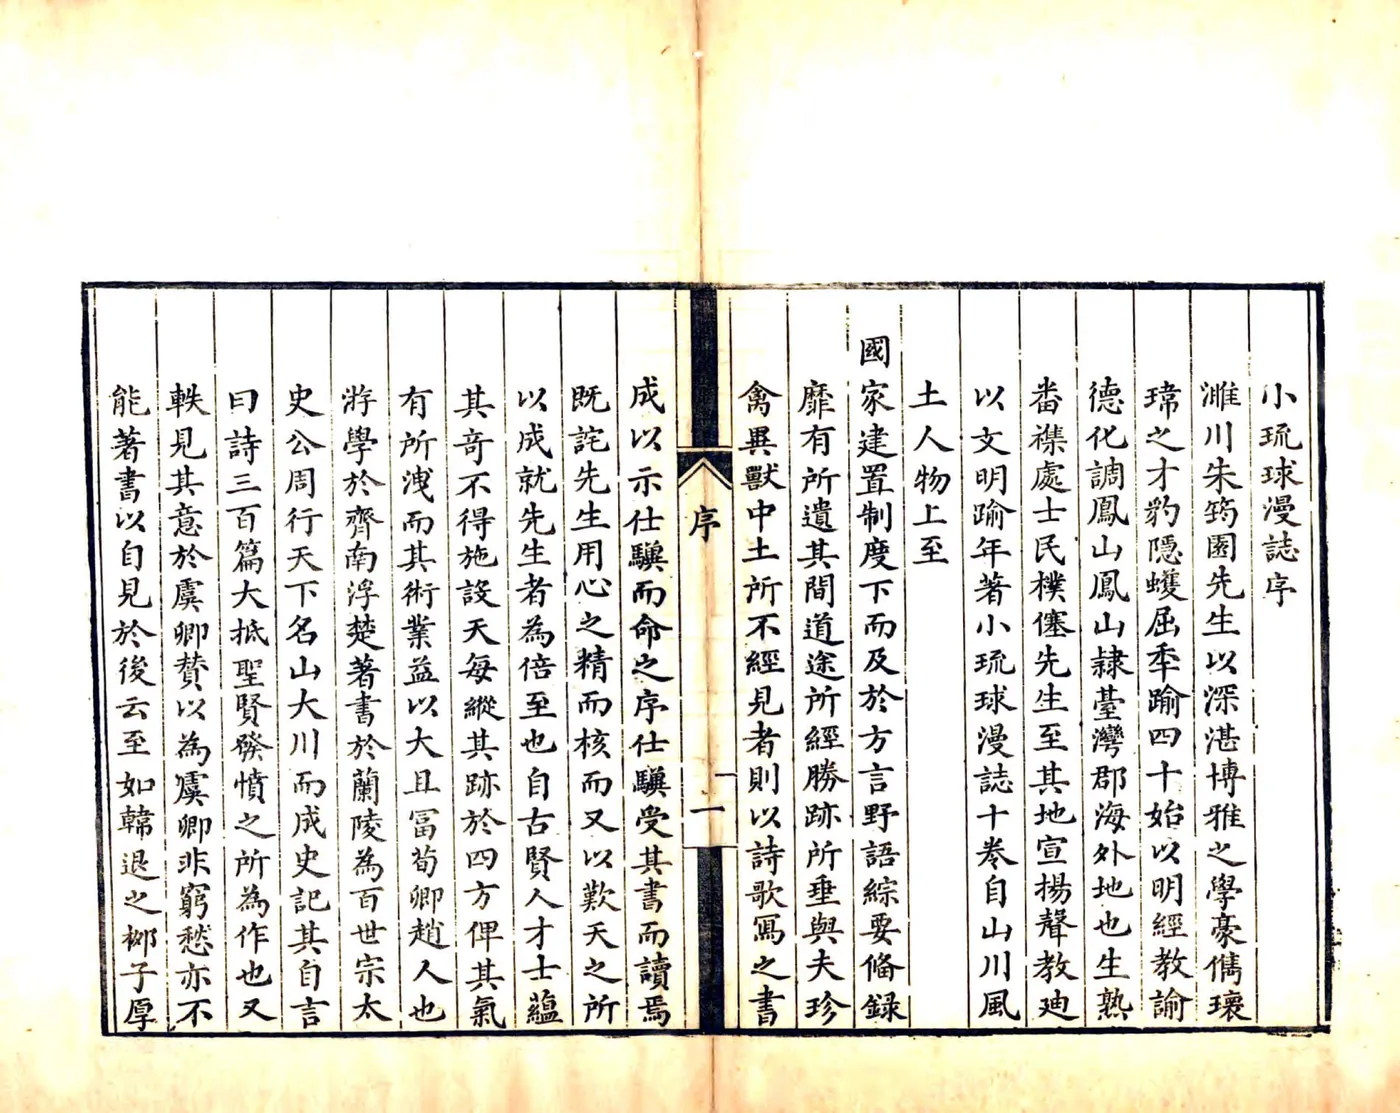 小琉球漫誌序
濰川朱筠園先生以深湛博雅之學豪儁瓌
瑋之才豹隱蠖屈年踰四十始以明經教諭
德化調鳳山鳳山隸臺灣郡海外地也生熟
畨襍處士民樸僿先生至其地宣揚聲教廸
以文明踰年著小琉球漫誌十卷自山川風
土人物上至
國家建置制度下而及於方言野語綜要偹録
靡有所遺其間道途所經勝跡所垂與夫珍
禽異獸中土所不經見者則以詩歌寫之書
序
一
成以示仕驥而命之序仕驥受其書而讀焉
既詫先生用心之精而核而又以歎天之所
以成就先生者為倍至也自古賢人才士蘊
其竒不得施設天每縱其跡於四方俾其氣
有所洩而其術業益以大且冨荀卿趙人也
遊學於齊南浮楚著書於蘭陵為百世宗太
史公周行天下名山大川而成史記其自言
曰詩三百篇大抵聖賢發憤之所為作也又
軼見其意於虞卿贊以為虞卿非窮愁亦不
能著書以自見於後云至如韓退之栁子厚